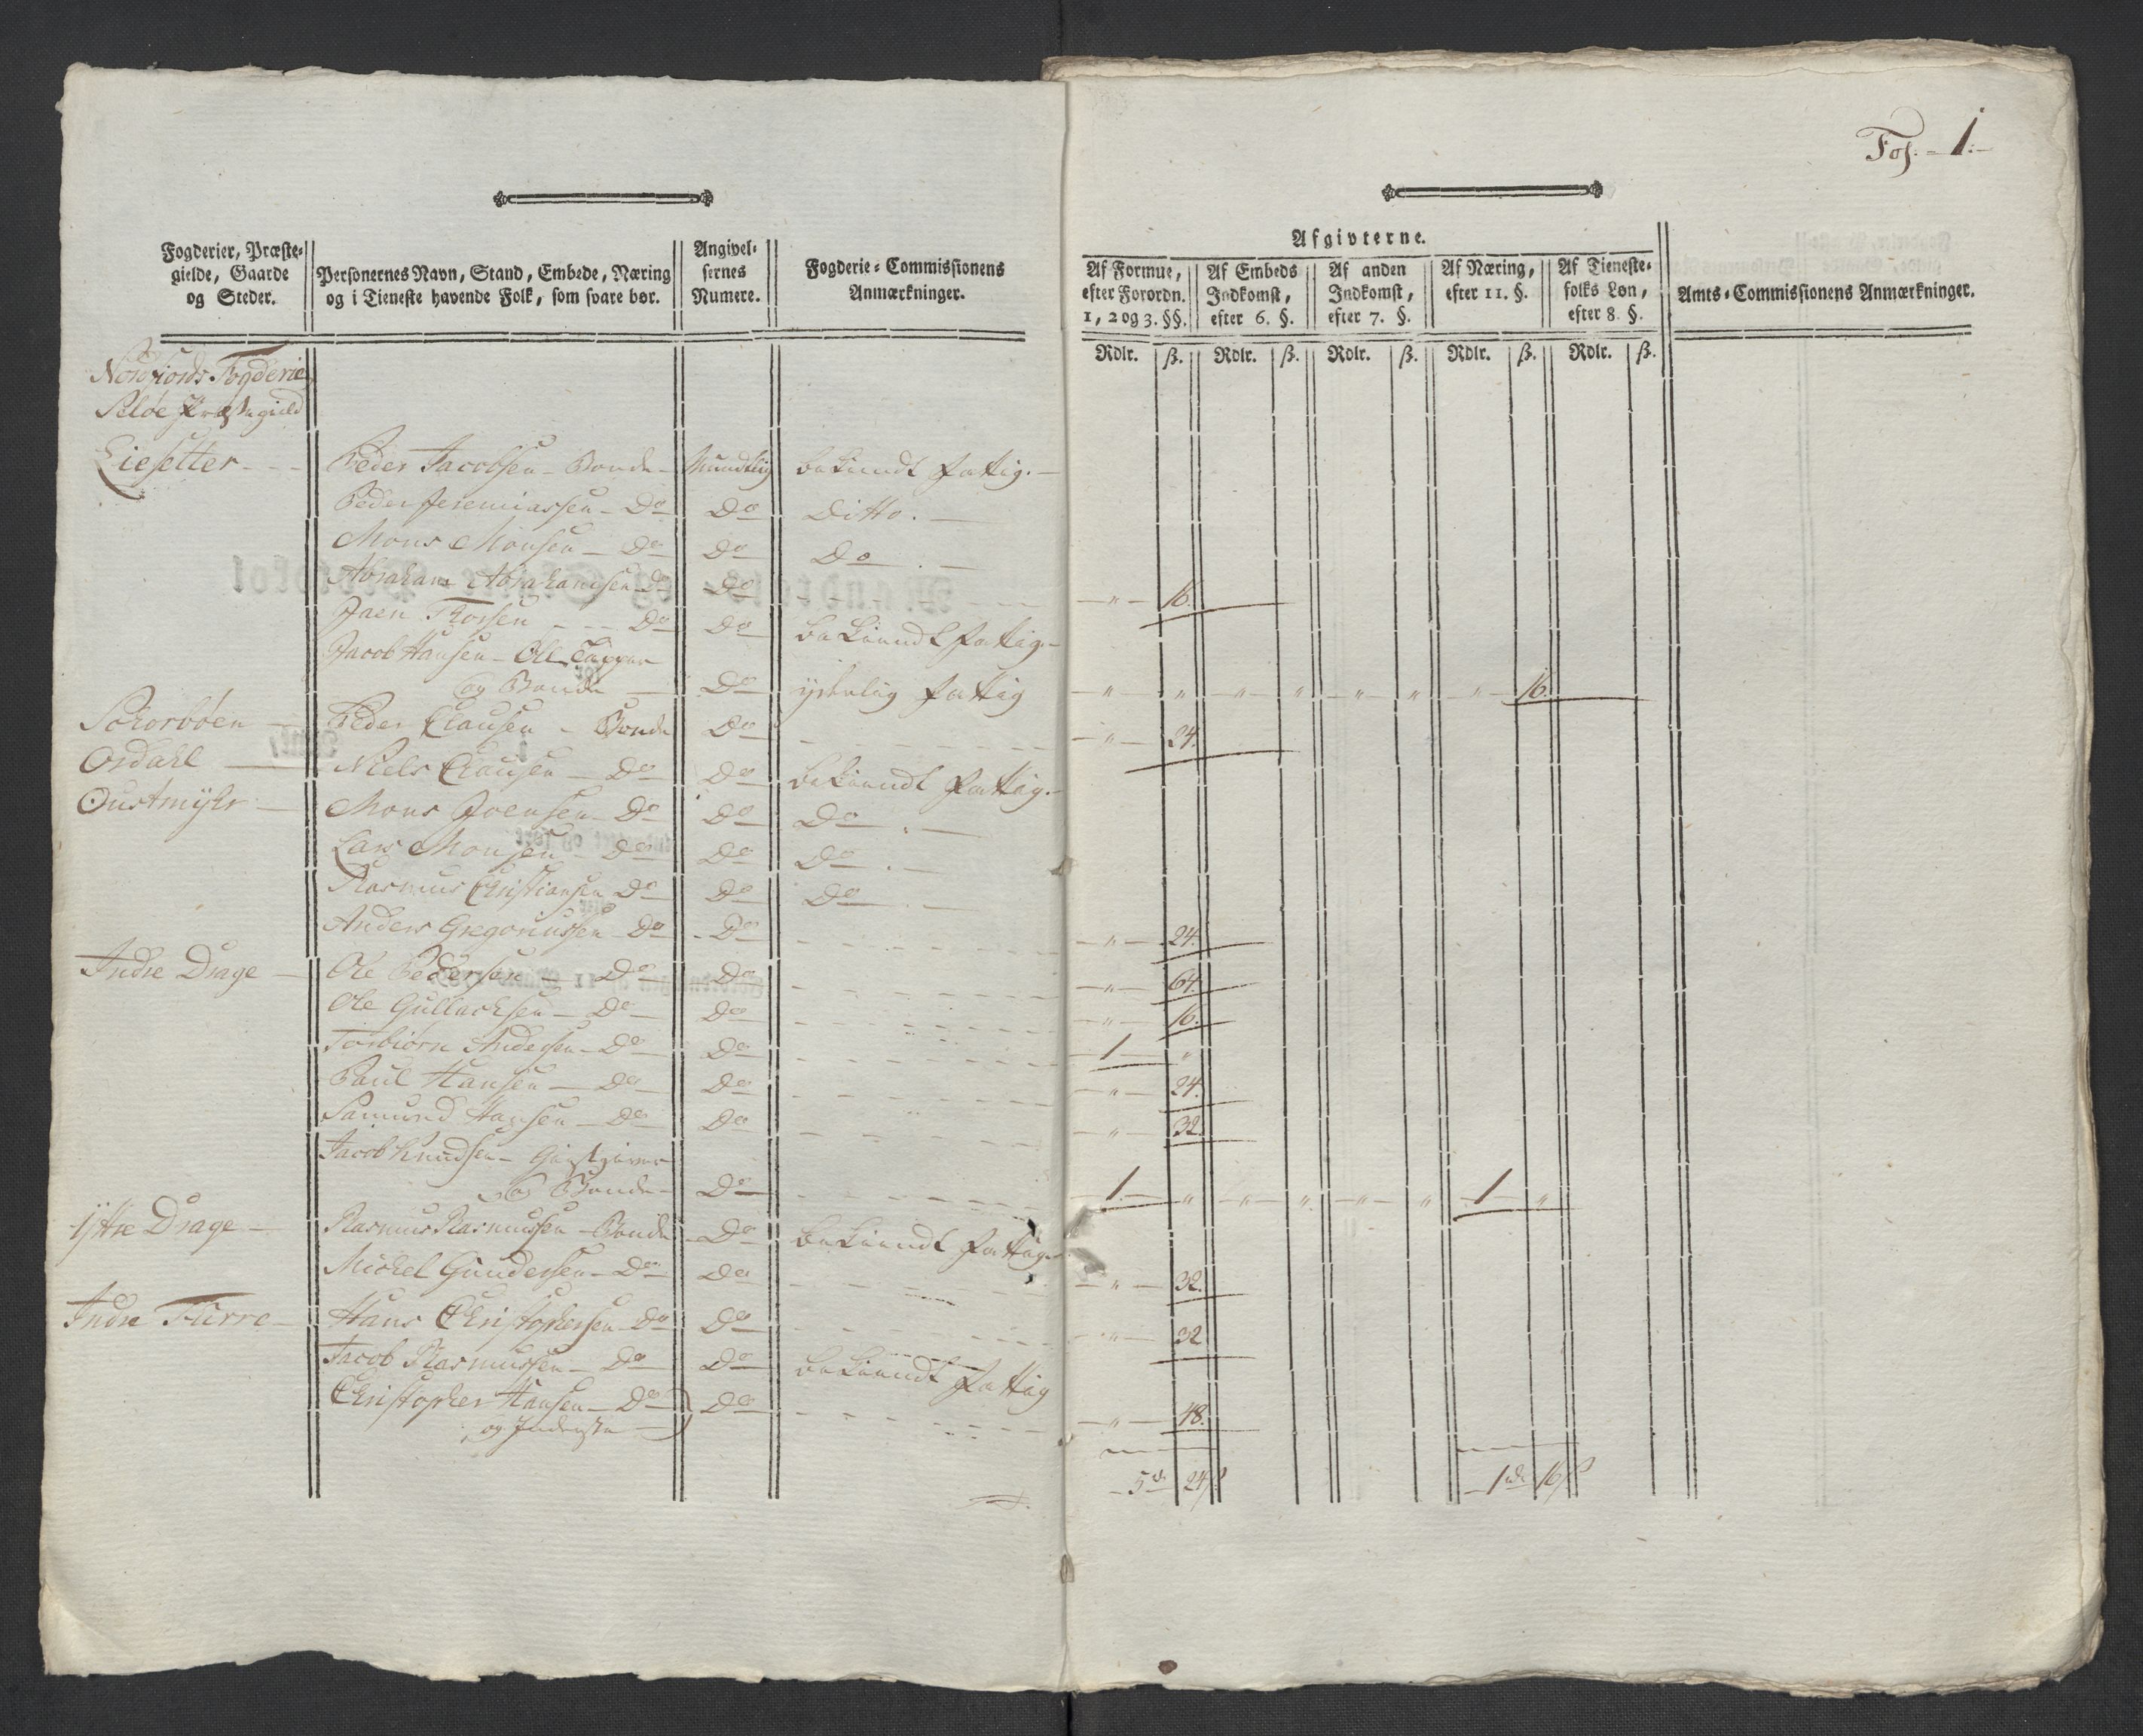 Fol. - 1. -
Fogderier, Præste-
gielde, Gaarde
og Steder.
Personernes Navn, Stand, Embede, Næring
og i Tieneste havende Folk, som svare bør.
Angivel-
sernes
Numere.
Fogderie-Commissionens
Anmærkninger.
Afgivterne.
Af Formue,
efter Forordn.
1, 2 og 3. §§.
Af Embeds
Indkomst,
efter 6. §.
Af anden
Indkomst,
efter 7. §.
Af Næring,
efter 11. §.
Af Tieneste-
folks Løn,
efter 8. §.
Amts-Commissionens Anmærkninger.
Rdlr. ß. Rdlr. ß. Rdlr. ß. Rdlr. ß. Rdlr. ß.
Nordfiords Fogderie
Seløe Præstegield
Liesetter - - Peder Jacobsen - Bonde - Mundtlig bekiendt fattig. -
Peder Jeremiassen - Do Do Ditto. -
Mons Monsen - Do Do Do . -
Abraham Abrahamsen Do Do - " - 16.
Jaen Thorsen - - - Do Do bekiendt fattig. -
Jacob Hansen - Øll Tapper
og Bonde - Do yderlig fattig - " - " - " - " - " - " - " - 16.
Schorbøen - Peder Clausen - Bonde Do - " - 24.
Osdahl - Niels Clausen - Do Do bekiendt fattig. -
Oustmyhr - Mons Joensen - Do Do Do . -
Lars Monsen - Do Do Do . -
Rasmus Christiansen Do Do Do . -
Anders Gregoriussen - Do - Do - " - 24.
Indre Drage - Ole Pedersen - Do Do - " - 64.
Ole Gullachsen - Do - Do - " - 16.
Torbiörn Andersen - Do Do 1 - "
Paul Hansen - Do - Do - " - 24.
Samund Hansen - Do - Do - " - 32.
Jacob Knudsen - Giestgiver
og Bonde - Do 1. - " - " - " - " - " - 1 "
Ÿttre Drage - Rasmus Rasmussen - Bonde - Do bekiendt fattig. -
Michel Gundersen - Do Do - " - 32.
Indre Flerre - Hans Christophersen - Do Do - " - 32
Jacob Rasmussen - Do Do bekiendt fattig
Christopher Hansen - Do Do - " - 48.
og Inderste -
- 5 rd 24 ß - 1 rd 16 ß